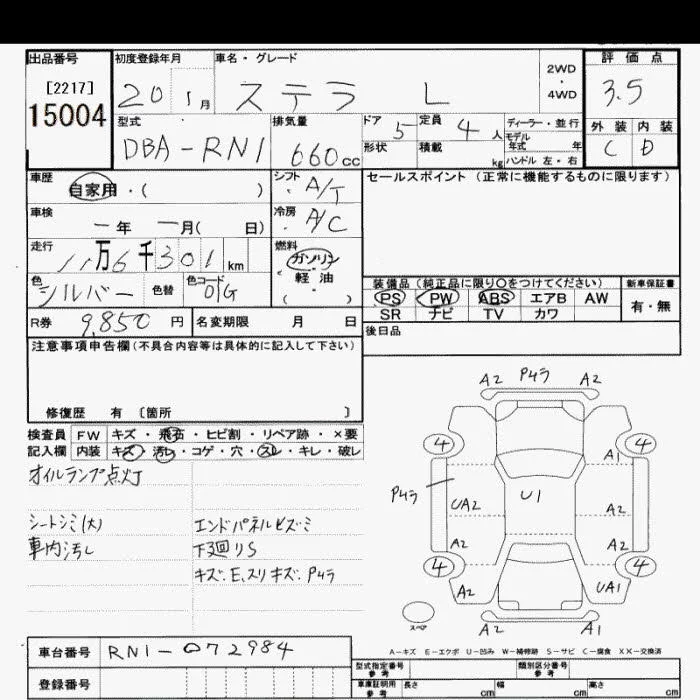 出品番号 初度登録年月 車名・グレード 2WD・4WD 評価点
[2217] 15004 20 1月 ステラ L 3.5
型式 排気量 ドア 5 定員 4人 ディーラー・並行 外装 内装
DBA-RN1 660cc 形状 積載 kg モデル年式 年 ハンドル 左・右 C D
車歴 自家用・( ) シフト A/T セールスポイント (正常に機能するものに限ります)
車検 一年 一月( 日) 冷房 A/C
走行 11万6千301km 燃料 ガソリン 軽油 ( )
色 シルバー 色替 色コード 01G 装備品 (純正品に限り○をつけてください) 新車保証書
PS PW ABS エアB AW 有・無
SR ナビ TV カワ
R券 9,850円 名変期限 月 日 後日品
注意事項申告欄(不具合内容等は具体的に記入して下さい)
修復歴 有 〔箇所 〕
検査員 FW キズ・飛石・ヒビ割・リペア跡・×要
記入欄 内装 キズ・汚レ・コゲ・穴・スレ・キレ・破レ
オイルランプ点灯
シートシミ(大) エンドパネルヒズミ
車内汚レ 下廻りS
キズ.E.スリキズ.P4ラ
A2 P4ラ A2
4 4
A1
P4ラ UA2 U1 A2
A2 A2
4 4
A2 UA1
スペア A2 A1
A-キズ E-エクボ U-凹み W-補修跡 S-サビ C-腐食 XX-交換済
車台番号 RN1-072984
登録番号 型式指定番号 参考 類別区分番号 参考
車庫証明用 参考 長さ cm 幅 cm 高さ cm